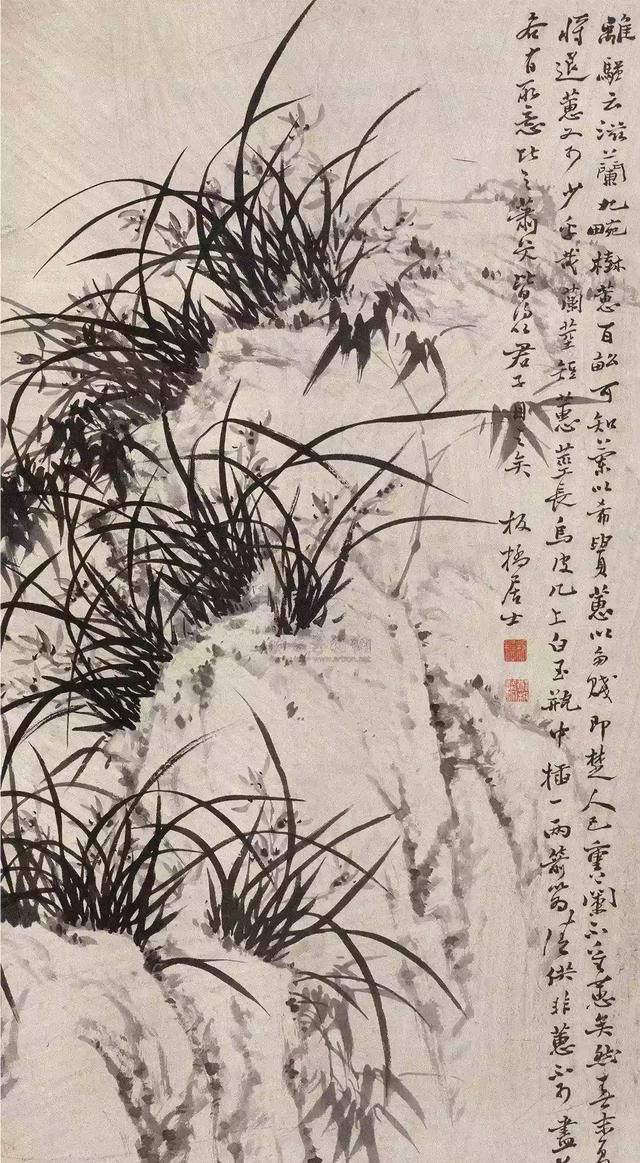 離騷云滋蘭九畹樹蕙百畝可知蘭以希貴蕙以多賤即楚人已重蘭不重蕙矣然春末
將退蕙又可少乎哉蘭莖短蕙莖長烏皮几上白玉瓶中插一兩箭為清供非蕙不可盡
若取意比之蕭艾皆君子目之矣
板橋居士